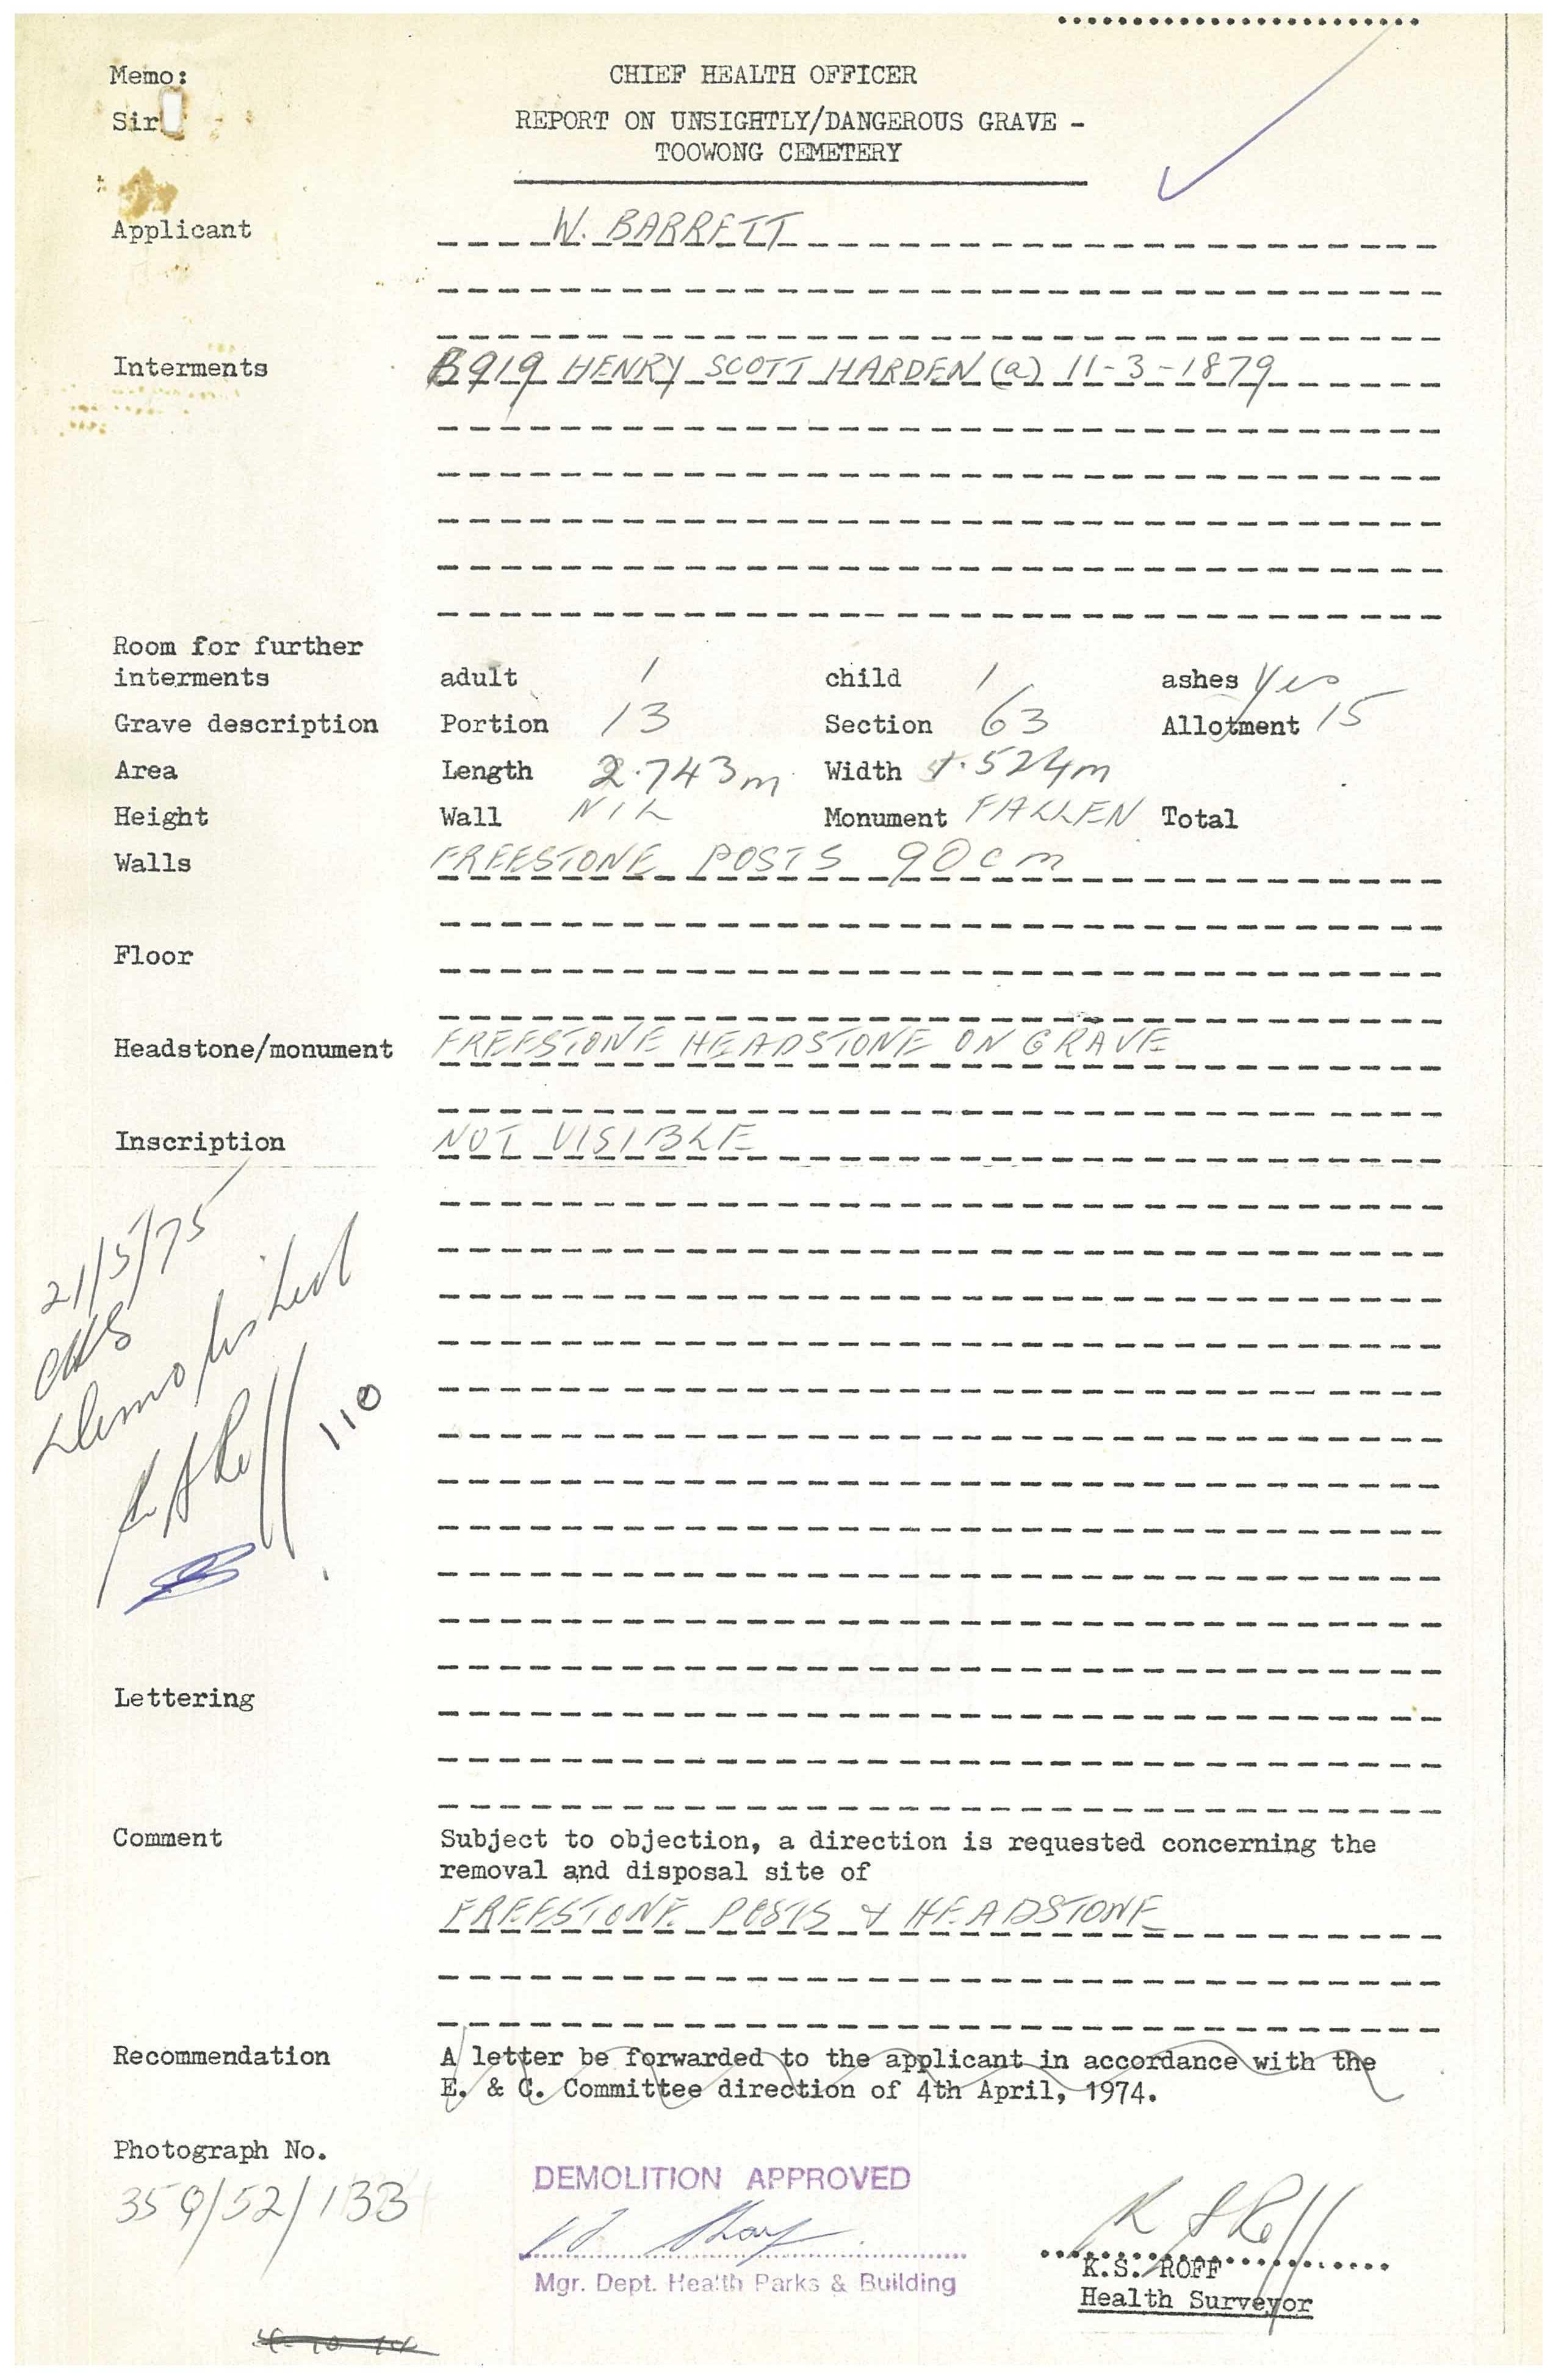 Memo: CHIEF HEALTH OFFICER
Sir
REPORT ON UNSIGHTLY/DANGEROUS GRAVE -
TOOWONG CEMETERY
Applicant W. BARRETT
Interments B919 HENRY SCOTT HARDEN (a) 11-3-1879
Room for further
interments adult 1 child 1 ashes Yes
Grave description Portion 13 Section 63 Allotment 15
Area Length 2.743m Width 1.524m
Height Wall NIL Monument FALLEN Total
Walls FREESTONE POSTS 90cm
Floor
Headstone/monument FREESTONE HEADSTONE ON GRAVE
Inscription NOT VISIBLE
21/5/75
Demolished
K S Roff
110
Lettering
Comment Subject to objection, a direction is requested concerning the
removal and disposal site of
FREESTONE POSTS & HEADSTONE
Recommendation A letter be forwarded to the applicant in accordance with the
E. & C. Committee direction of 4th April, 1974.
Photograph No.
359/52/133
DEMOLITION APPROVED
K S Roff
K.S. ROFF
Mgr. Dept. Health Parks & Building
Health Surveyor